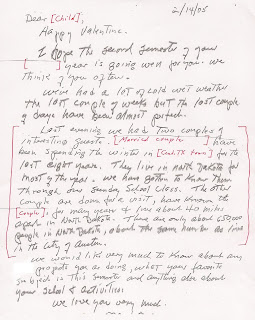 2/14/05
Dear [Child],
Happy Valentine.
I hope the second semester of your
[ ] year is going well for you. We
think of you often.
We've had a lot of cold wet weather
the last couple of weeks but the last couple
of days have been almost perfect.
Last evening we had two couples of
interesting guests. [Married couple] have
been spending the winter in [ town] for the
last eight years. They live in North Dakota for
most of the year. We have gotten to know them
through our Sunday School class. The other
couple are down for a visit, have known the
[Couple] for many years & live about 40 miles
apart in North Dakota. There are only about 650,000
people in North Dakota, about the same number as live
in the city of Austin.
We would like very much to know about any
projects you are doing, what your favorite
subject is this semester and anything else about
your school & activities.
We love you very much.